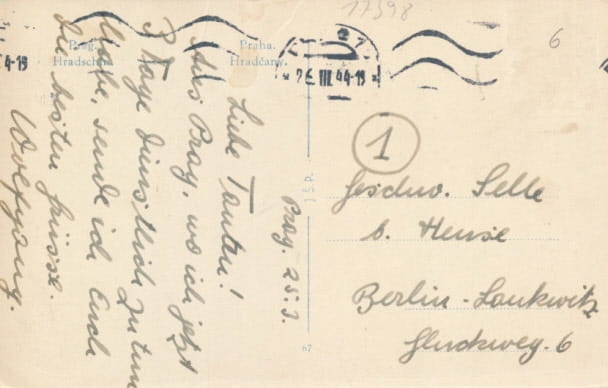 17398
6
Prag.
Hradschin.
Praha.
Hradčany.
* 26. III. 44-19 *
4-19
Prag. 25.3.
Liebe Tanten!
Aus Prag, wo ich jetzt
3 Tage dienstlich zu tun
habe, sende ich Euch
die besten Grüsse.
Wolfgang.
J.S.P.
67
1
Geschw. Selle
b. Hense
Berlin-Lankwitz
Gluckweg. 6